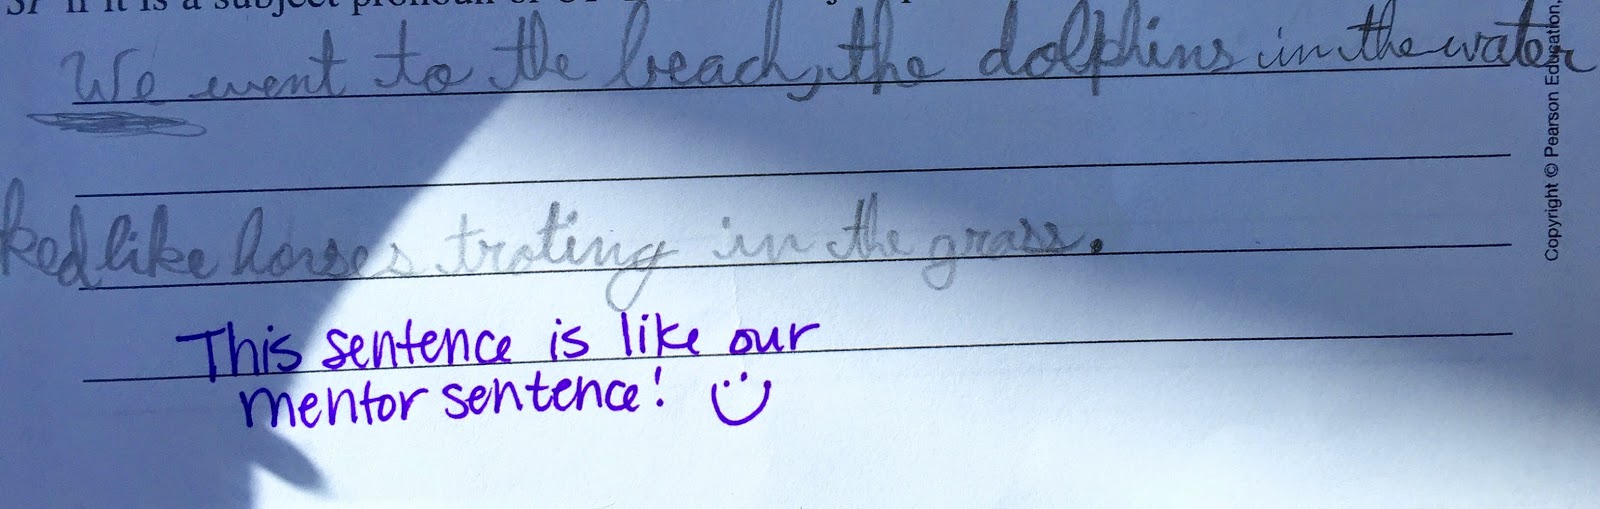 We went to the beach, the dolphins in the water
ked like horses troting in the grass.
This sentence is like our
mentor sentence!
Copyright © Pearson Education,